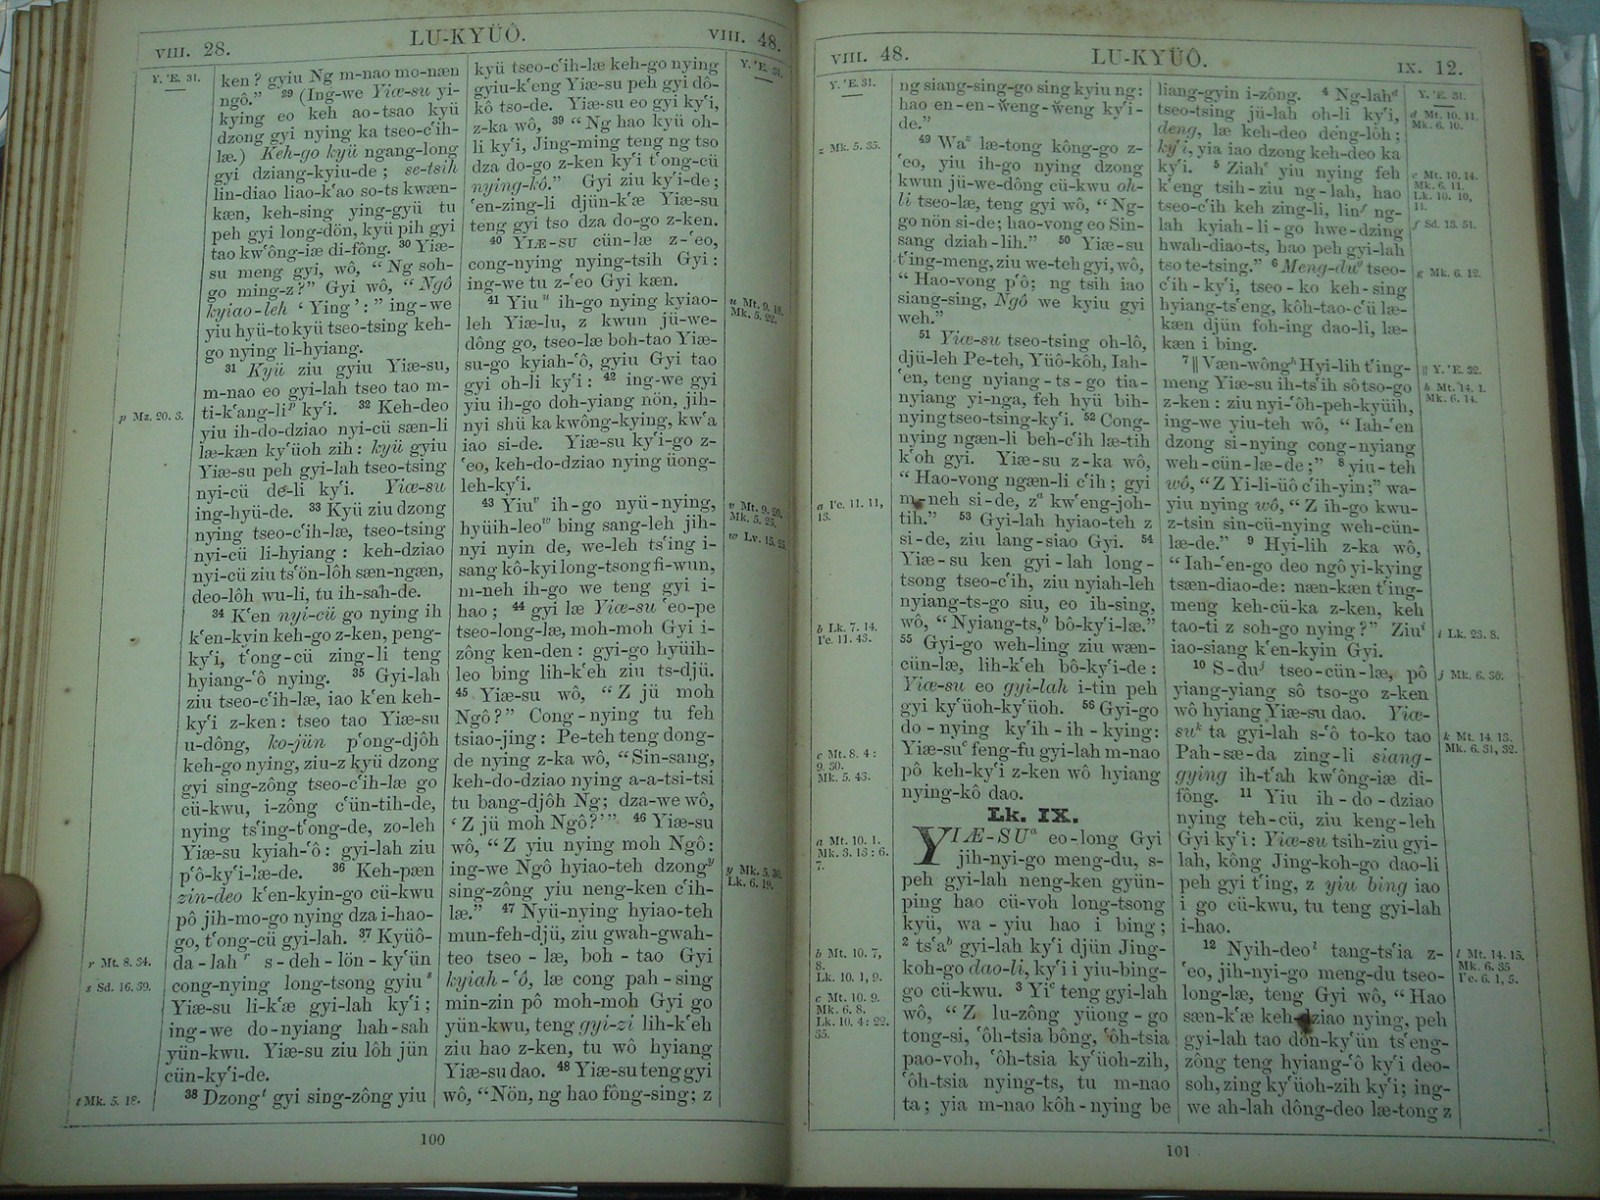 VIII. 28.
LU-KYÜÔ.
VIII. 48.
Y. 'E. 31.
ken? gyiu Ng m-nao mo-næn
ngô.” 29 (Ing-we Yiæ-su yi-
kying eo keh ao-tsao kyü
dzong gyi nying ka tseo-cʻih-
læ.) Keh-go kyü ngang-long
gyi dziang-kyiu-de; se-tsih
lin-diao liao-kʻao so-ts kwæn-
kæn, keh-sing ying-gyü tu
peh gyi long-dön, kyü pih gyi
tao kwʻông-iæ di-fông. 30 Yiæ-
su meng gyi, wô, “Ng soh-
go ming-z?” Gyi wô, “Ngô
kyiao-leh ‘Ying’:” ing-we
yiu hyü-to kyü tseo-tsing keh-
go nying li-hyiang.
31 Kyü ziu gyiu Yiæ-su,
m-nao eo gyi-lah tseo tao m-
ti-kʻang-lip kyʻi. 32 Keh-deo
yiu ih-do-dziao nyi-cü sæn-li
læ-kæn kyʻüoh zih: kyü gyiu
Yiæ-su peh gyi-lah tseo-tsing
nyi-cü de-li kyʻi. Yiæ-su
ing-hyü-de. 33 Kyü ziu dzong
nying tseo-cʻih-læ, tseo-tsing
nyi-cü li-hyiang: keh-dziao
nyi-cü ziu tsʻön-lôh sæn-ngæn,
deo-lôh wu-li, tu ih-sah-de.
34 Kʻen nyi-cü go nying ih
kʻen-kyin keh-go z-ken, peng-
kyʻi, tʻong-cü zing-li teng
hyiang-ʻô nying. 35 Gyi-lah
ziu tseo-cʻih-læ, iao kʻen keh-
kyʻi z-ken: tseo tao Yiæ-su
u-dông, ko-jün pʻong-djôh
keh-go nying, ziu-z kyü dzong
gyi sing-zông tseo-cʻih-læ go
cü-kwu, i-zông cʻün-tih-de,
nying tsʻing-tʻong-de, zo-leh
Yiæ-su kyiah-ʻô: gyi-lah ziu
pʻô-kyʻi-læ-de. 36 Keh-pæn
zin-deo kʻen-kyin-go cü-kwu
pô jih-mo-go nying dza i-hao-
go, tʻong-cü gyi-lah. 37 Kyüô-
da-lah r s-deh-lön-kyʻün
cong-nying long-tsong gyiu s
Yiæ-su li-kʻæ gyi-lah kyʻi;
ing-we do-nyiang hah-sah
yün-kwu. Yiæ-su ziu lôh jün
cün-kyʻi-de.
38 Dzong t gyi sing-zông yiu
p Mz. 20. 3.
r Mt. 8. 34.
s Sd. 16. 39.
t Mk. 5. 18.
kyü tseo-cʻih-læ keh-go nying
gyiu-kʻeng Yiæ-su peh gyi dô-
kô tso-de. Yiæ-su eo gyi kyʻi,
z-ka wô, 39 “Ng hao kyü oh-
li kyʻi, Jing-ming teng ng tso
dza do-go z-ken kyʻi tʻong-cü
nying-kô.” Gyi ziu kyʻi-de;
ʻen-zing-li djün-kʻæ Yiæ-su
teng gyi tso dza do-go z-ken.
40 YIÆ-SU cün-læ z-ʻeo,
cong-nying nying-tsih Gyi:
ing-we tu z-ʻeo Gyi kæn.
41 Yiu u ih-go nying kyiao-
leh Yiæ-lu, z kwun jü-we-
dông go, tseo-læ boh-tao Yiæ-
su-go kyiah-ʻô, gyiu Gyi tao
gyi oh-li kyʻi: 42 ing-we gyi
yiu ih-go doh-yiang nön, jih-
nyi shü ka kwông-kying, kwʻa
iao si-de. Yiæ-su kyʻi-go z-
ʻeo, keh-do-dziao nying üong-
leh-kyʻi.
43 Yiu v ih-go nyü-nying,
hyüih-leo w bing sang-leh jih-
nyi nyin de, we-leh tsʻing i-
sang kô-kyi long-tsong fi-wun,
m-neh ih-go we teng gyi i-
hao; 44 gyi læ Yiæ-su ʻeo-pe
tseo-long-læ, moh-moh Gyi i-
zông ken-den: gyi-go hyüih-
leo bing lih-kʻeh ziu ts-djü.
45 Yiæ-su wô, “Z jü moh
Ngô?” Cong-nying tu feh
tsiao-jing: Pe-teh teng dong-
de nying z-ka wô, “Sin-sang,
keh-do-dziao nying a-a-tsi-tsi
tu bang-djôh Ng; dza-we wô,
‘Z jü moh Ngô?’” 46 Yiæ-su
wô, “Z yiu nying moh Ngô:
ing-we Ngô hyiao-teh dzong y
sing-zông yiu neng-ken cʻih-
læ.” 47 Nyü-nying hyiao-teh
mun-feh-djü, ziu gwah-gwah-
teo tseo-læ, boh-tao Gyi
kyiah-ʻô, læ cong pah-sing
min-zin pô moh-moh Gyi go
yün-kwu, teng gyi-zi lih-kʻeh
ziu hao z-ken, tu wô hyiang
Yiæ-su dao. 48 Yiæ-su teng gyi
wô, “Nön, ng hao fông-sing; z
Y. 'E. 31.
u Mt. 9. 18.
Mk. 5. 22.
v Mt. 9. 20.
Mk. 5. 25.
w Lv. 15. 25.
y Mk. 5. 30.
Lk. 6. 19.
100
VIII. 48.
LU-KYÜÔ.
IX. 12.
Y. 'E. 31.
z Mk. 5. 35.
a Yc. 11. 11,
13.
b Lk. 7. 14.
Yc. 11. 43.
c Mt. 8. 4:
9. 30.
Mk. 5. 43.
a Mt. 10. 1.
Mk. 3. 13: 6.
7.
b Mt. 10. 7,
8.
Lk. 10. 1, 9.
c Mt. 10. 9.
Mk. 6. 8.
Lk. 10. 4: 22.
35.
ng siang-sing-go sing kyiu ng:
hao en-en-weng-weng kyʻi-
de.”
49 Wa z læ-tong kông-go z-
ʻeo, yiu ih-go nying dzong
kwun jü-we-dông cü-kwu oh-
li tseo-læ, teng gyi wô, “Ng-
go nön si-de; hao-vong eo Sin-
sang dziah-lih.” 50 Yiæ-su
tʻing-meng, ziu we-teh gyi, wô,
“Hao-vong pʻô; ng tsih iao
siang-sing, Ngô we kyiu gyi
weh.”
51 Yiæ-su tseo-tsing oh-lô,
djü-leh Pe-teh, Yüô-kôh, Iah-
ʻen, teng nyiang-ts-go tia-
nyiang yi-nga, feh hyü bih-
nying tseo-tsing-kyʻi. 52 Cong-
nying ngæn-li beh-cʻih læ-tih
kʻoh gyi. Yiæ-su z-ka wô,
“Hao-vong ngæn-li cʻih; gyi
m-neh si-de, z a kwʻeng-joh-
tih.” 53 Gyi-lah hyiao-teh z
si-de, ziu lang-siao Gyi. 54
Yiæ-su ken gyi-lah long-
tsong tseo-cʻih, ziu nyiah-leh
nyiang-ts-go siu, eo ih-sing,
wô, “Nyiang-ts, b bô-kyʻi-læ.”
55 Gyi-go weh-ling ziu wæn-
cün-læ, lih-kʻeh bô-kyʻi-de:
Yiæ-su eo gyi-lah i-tin peh
gyi kyʻüoh-kyʻüoh. 56 Gyi-go
do-nying kyʻih-ih-kying:
Yiæ-su c feng-fu gyi-lah m-nao
pô keh-kyʻi z-ken wô hyiang
nying-kô dao.
Lk. IX.
YIÆ-SU a eo-long Gyi
jih-nyi-go meng-du, s-
peh gyi-lah neng-ken gyün-
ping hao cü-voh long-tsong
kyü, wa-yiu hao i bing;
2 tsʻa b gyi-lah kyʻi djün Jing-
koh-go dao-li, kyʻi i yiu-bing-
go cü-kwu. 3 Yi c teng gyi-lah
wô, “Z lu-zông yüong-go
tong-si, ʻôh-tsia bông, ʻôh-tsia
pao-voh, ʻôh-tsia kyʻüoh-zih,
ʻôh-tsia nying-ts, tu m-nao
ta; yia m-nao kôh-nying be
liang-gyin i-zông. 4 Ng-lah d
tseo-tsing jü-lah oh-li kyʻi,
deng, læ keh-deo deng-lôh;
kyʻi, yia iao dzong keh-deo ka
kyʻi. 5 Ziah e yiu nying feh
kʻeng tsih-ziu ng-lah, hao
tseo-cʻih keh zing-li, lin f ng-
lah kyiah-li-go hwe-dzing
hwah-diao-ts, hao peh gyi-lah
tso te-tsing.” 6 Meng-du g tseo-
cʻih-kyʻi, tseo-ko keh-sing
hyiang-tsʻeng, kôh-tao-cʻü læ-
kæn djün foh-ing dao-li, læ-
kæn i bing.
7 || Væn-wông h Hyi-lih tʻing-
meng Yiæ-su ih-tsʻih sô tso-go
z-ken: ziu nyi-ʻôh-peh-kyüih,
ing-we yiu-teh wô, “Iah-ʻen
dzong si-nying cong-nyiang
weh-cün-læ-de;” 8 yiu-teh
wô, “Z Yi-li-üô cʻih-yin;” wa-
yiu nying wô, “Z ih-go kwu-
z-tsin sin-cü-nying weh-cün-
læ-de.” 9 Hyi-lih z-ka wô,
“Iah-ʻen-go deo ngô yi-kying
tsæn-diao-de: næn-kæn tʻing-
meng keh-cü-ka z-ken, keh
tao-ti z soh-go nying?” Ziu i
iao-siang kʻen-kyin Gyi.
10 S-du j tseo-cün-læ, pô
yiang-yiang sô tso-go z-ken
wô hyiang Yiæ-su dao. Yiæ-
su k ta gyi-lah s-ʻô to-ko tao
Pah-sæ-da zing-li siang-
gying ih-tʻah kwʻông-iæ di-
fông. 11 Yiu ih-do-dziao
nying teh-cü, ziu keng-leh
Gyi kyʻi: Yiæ-su tsih-ziu gyi-
lah, kông Jing-koh-go dao-li
peh gyi tʻing, z yiu bing iao
i go cü-kwu, tu teng gyi-lah
i-hao.
12 Nyih-deo l tang-tsʻia z-
ʻeo, jih-nyi-go meng-du tseo-
long-læ, teng Gyi wô, “Hao
sæn-kʻæ keh-dziao nying, peh
gyi-lah tao dön-kyʻün tsʻeng-
zông teng hyiang-ʻô kyʻi deo-
soh, zing kyʻüoh-zih kyʻi; ing-
we ah-lah dông-deo læ-tong z
Y. 'E. 31.
d Mt. 10. 11.
Mk. 6. 10.
e Mt. 10. 14.
Mk. 6. 11.
Lk. 10. 10,
11.
f Sd. 13. 51.
g Mk. 6. 12.
|| Y. 'E. 32.
h Mt. 14. 1.
Mk. 6. 14.
i Lk. 23. 8.
j Mk. 6. 30.
k Mt. 14. 13.
Mk. 6. 31, 32.
l Mt. 14. 15.
Mk. 6. 35
Yc. 6. 1, 5.
101